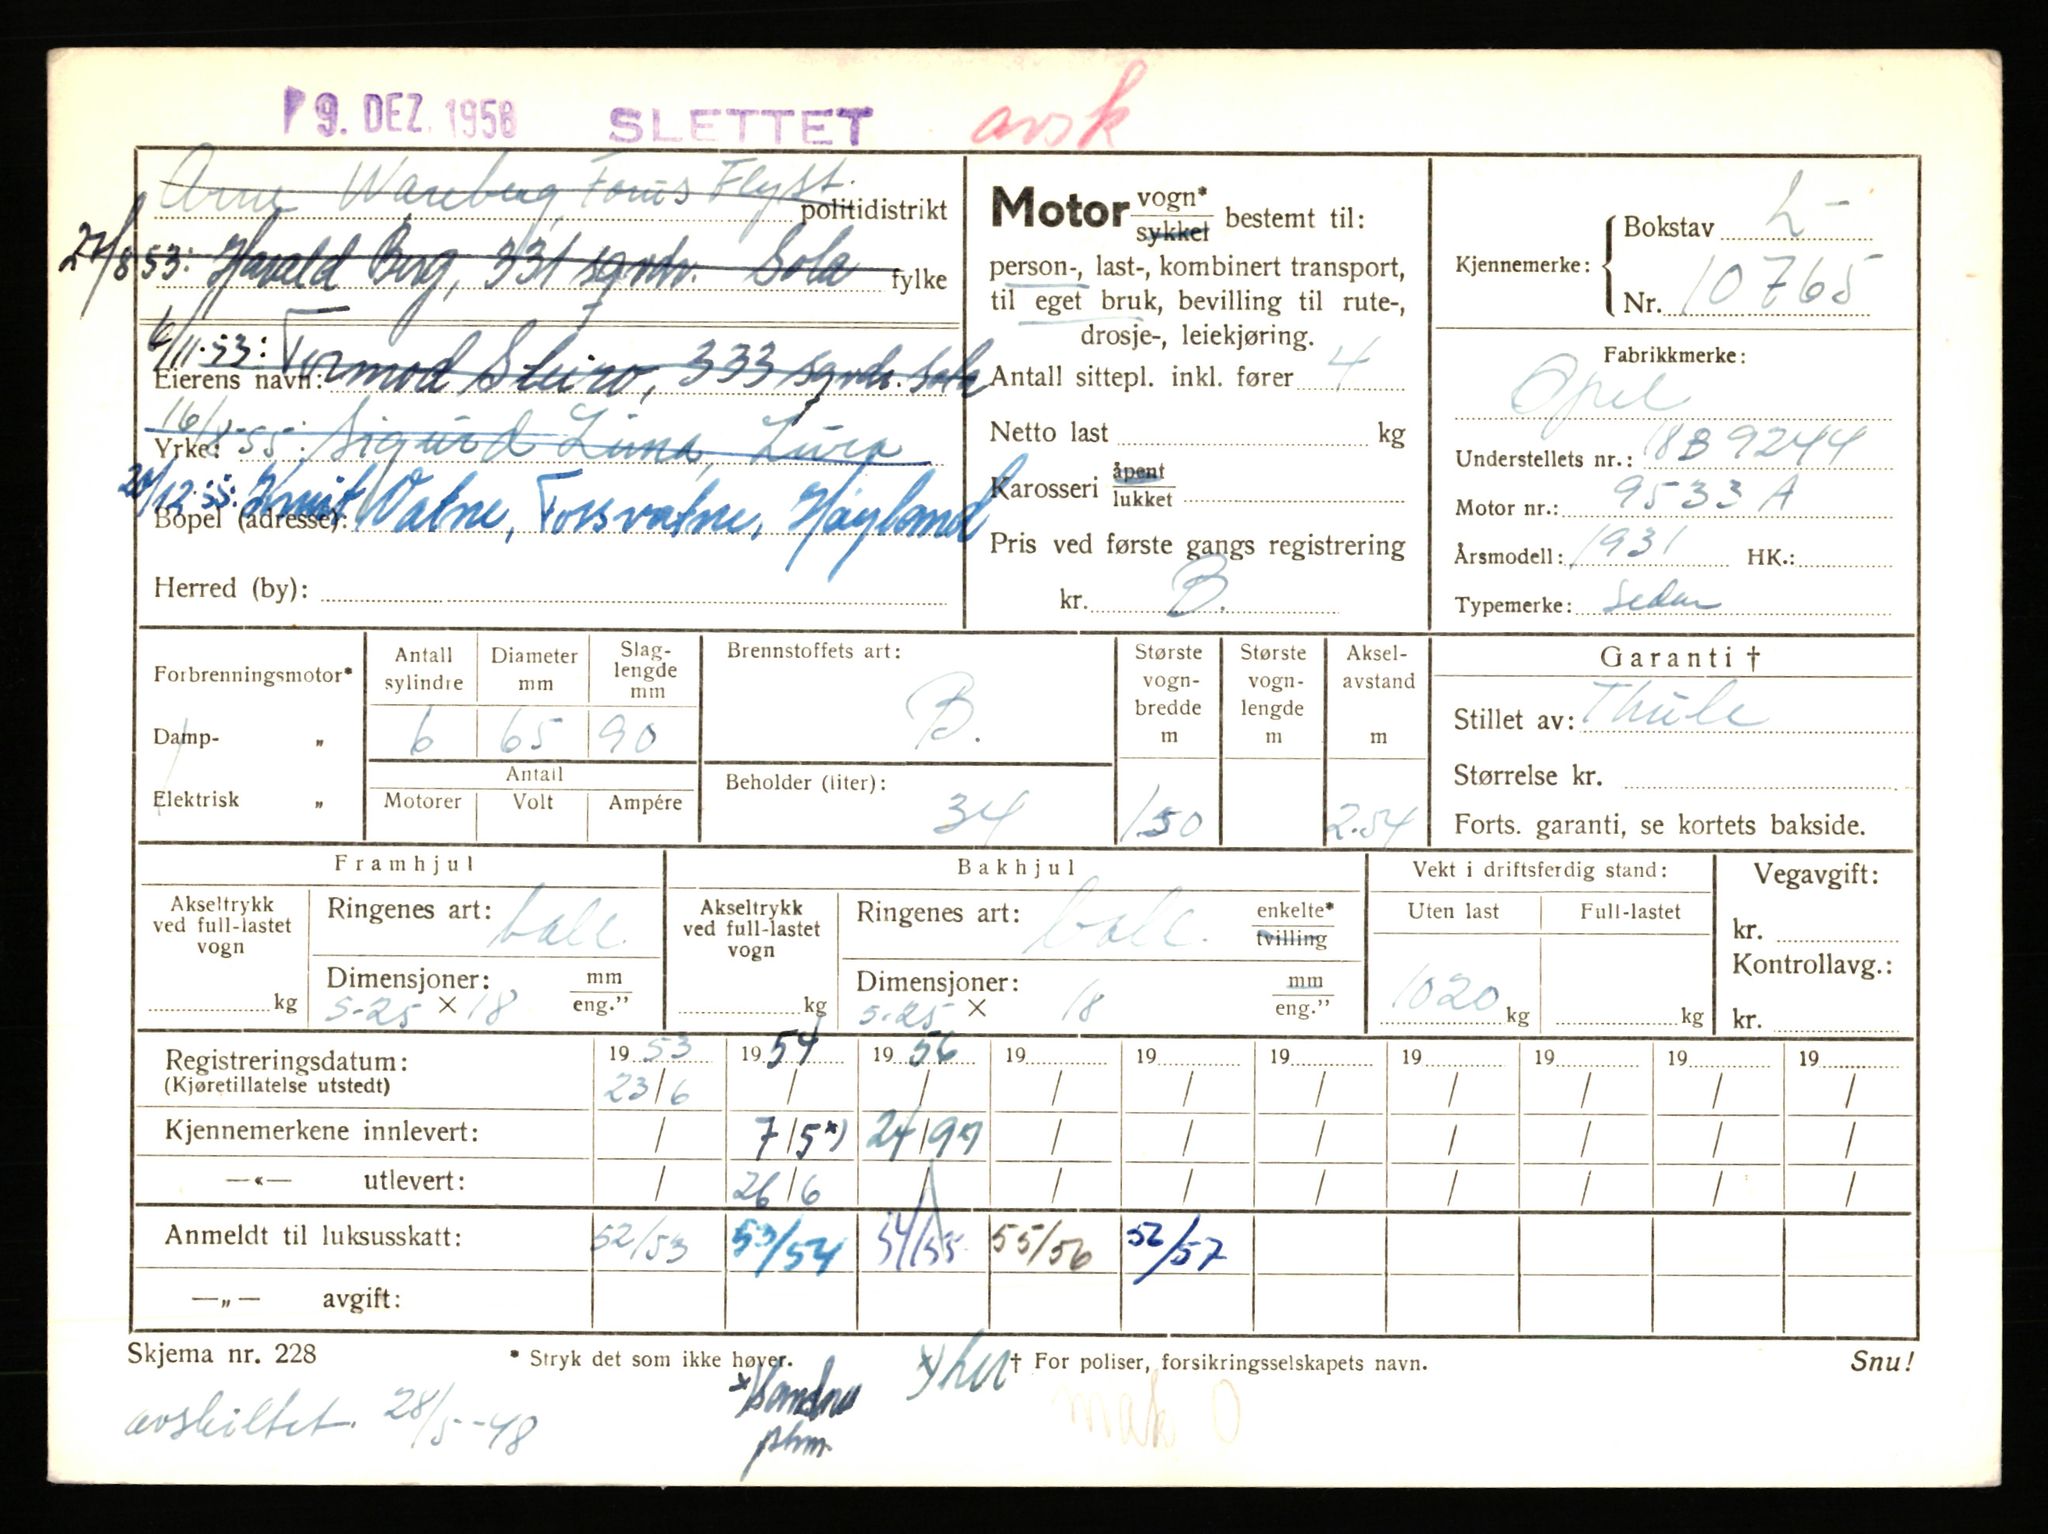 9. DEZ. 1958 SLETTET avsk
Arne Wareberg, Forus Flyst.
politidistrikt
27/8 53: Harald Berg, 331 sqvdr. Sola
fylke
6/11-53: Tormod Steiro, 333 sqvdr. Sola
Eierens navn:
16/8-55: Sigurd Lima, Lura
Yrke:
20/12-55: Knut Vatne, Forsvatne, Høyland
Bopel (adresse):
Herred (by):
Motor vogn* sykkel bestemt til:
person-, last-, kombinert transport,
til eget bruk, bevilling til rute-,
drosje-, leiekjøring.
Antall sittepl. inkl. fører 4
Netto last kg
Karosseri åpent lukket
Pris ved første gangs registrering
kr. B.
Kjennemerke: Bokstav L-
Nr. 10765
Fabrikkmerke:
Opel
Understellets nr.: 18B9244
Motor nr.: 9533 A
Årsmodell: 1931 HK.:
Typemerke: Sedan
Forbrenningsmotor*
Damp- „
Elektrisk „
Antall sylindre Diameter mm Slag-lengde mm
6 65 90
Antall
Motorer Volt Ampére
Brennstoffets art:
B.
Beholder (liter):
34
Største vogn-bredde m Største vogn-lengde m Aksel-avstand m
1.50 2.54
Garanti †
Stillet av: Thule
Størrelse kr.
Forts. garanti, se kortets bakside.
Framhjul
Akseltrykk ved full-lastet vogn
kg
Ringenes art: ball.
Dimensjoner: mm eng."
5-25 × 18
Bakhjul
Akseltrykk ved full-lastet vogn
kg
Ringenes art: ball. enkelte* tvilling
Dimensjoner: mm eng."
5-25 × 18
Vekt i driftsferdig stand:
Uten last Full-lastet
1020 kg kg
Vegavgift:
kr.
Kontrollavg.:
kr.
Registreringsdatum: 19 53 19 54 19 56 19 19 19 19 19 19 19
(Kjøretillatelse utstedt) 23/6 / / / / / / / / /
Kjennemerkene innlevert: / 7/5 *) 24/9 *) / / / / / / /
—«— utlevert: / 26/6 / / / / / / / /
Anmeldt til luksusskatt: 52/53 53/54 54/55 55/56 52/57
—„— avgift:
Skjema nr. 228 * Stryk det som ikke høver. † For poliser, forsikringsselskapets navn. Snu!
avskiltet 28/5-48
mak O